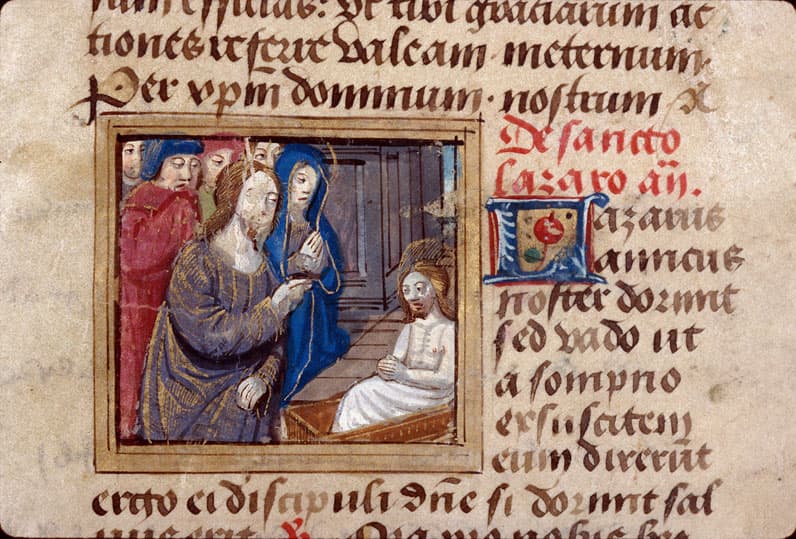 num efficias: Ut tibi graciarum ac
tiones referre valeam meternum.
Per xp̄m dominum nostrum
De sancto
lazaro an̄.
Lazarus
amicus
noster dormit
sed vado ut
a sompno
exsuscitem
eum dixerūt
ergo ei discipuli dn̄e si dormit sal
vus erit. Ora pro nobis be